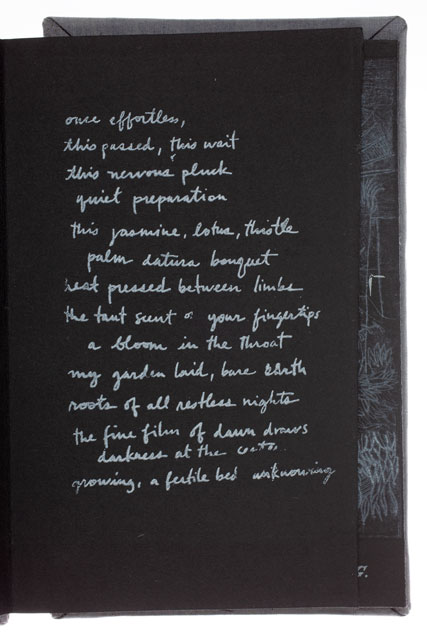 once effortless,
this passed, this wait
this nervous pluck
quiet preparation
this jasmine, lotus, thistle
palm datura bouquet
heat pressed between limbs
the taut scent of your fingertips
a bloom in the throat
my garden laid, bare earth
roots of all restless nights
the fine film of dawn draws
darkness at the
growing, a fertile bed unknowing